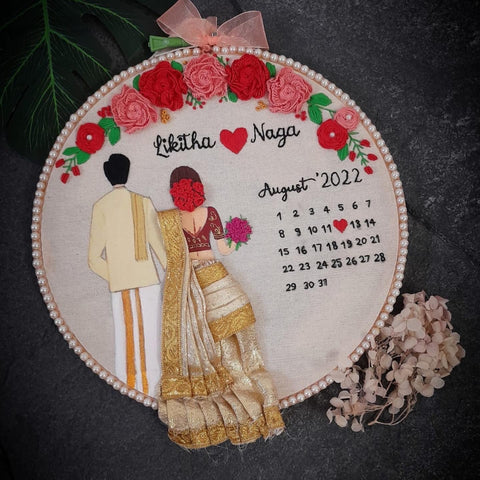 Likitha ❤ Naga
August '2022
1 2 3 4 5 6 7
8 9 10 11 ❤ 13 14
15 16 17 18 19 20 21
22 23 24 25 26 27 28
29 30 31